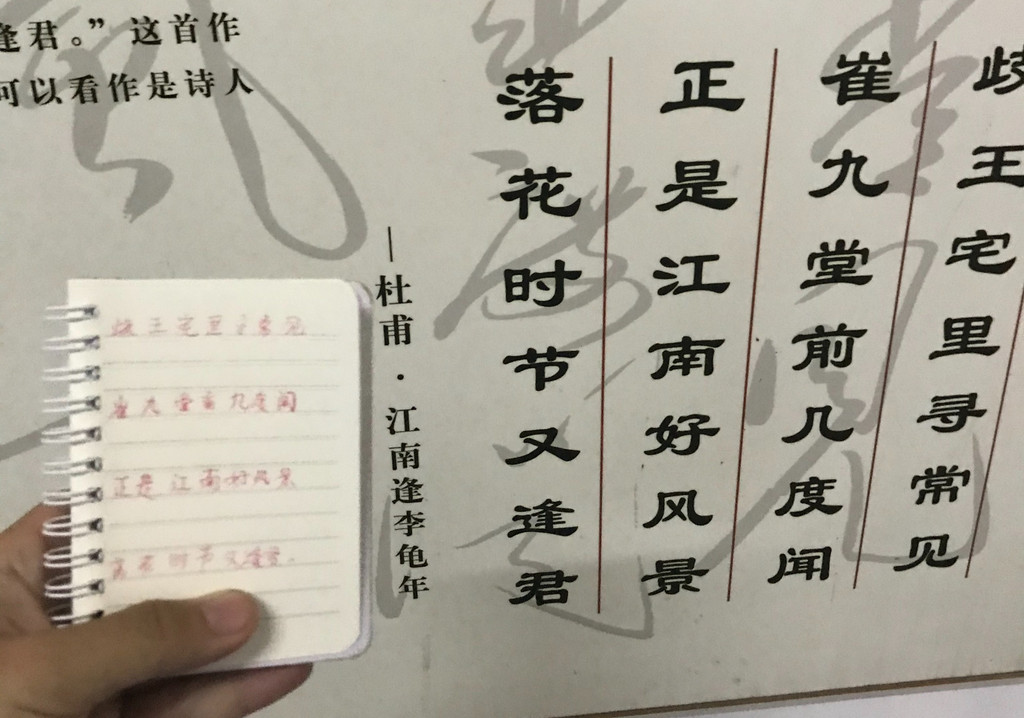 歧王宅里寻常见
崔九堂前几度闻
正是江南好风景
落花时节又逢君
—杜甫·江南逢李龟年
逢君。”这首作
可以看作是诗人
王宅里常见
崔九堂前几度闻
正是江南好风景
落花时节又逢君.